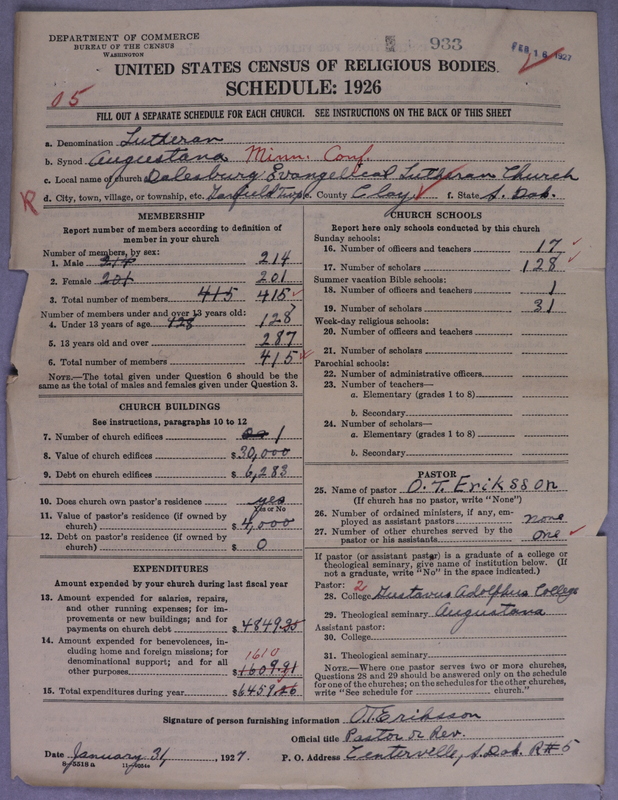 DEPARTMENT OF COMMERCE
BUREAU OF THE CENSUS
WASHINGTON
933
FEB 16 1927
UNITED STATES CENSUS OF RELIGIOUS BODIES
SCHEDULE: 1926
05
FILL OUT A SEPARATE SCHEDULE FOR EACH CHURCH. SEE INSTRUCTIONS ON THE BACK OF THIS SHEET
a. Denomination Lutheran
b. Synod Augustana Minn. Conf.
c. Local name of church Dalesburg Evangelical Lutheran Church
R d. City, town, village, or township, etc. Garfield Twp e. County Clay f. State S. Dak.
MEMBERSHIP
Report number of members according to definition of
member in your church
Number of members, by sex:
1. Male 214 214
2. Female 201 201
3. Total number of members 415 415
Number of members under and over 13 years old:
4. Under 13 years of age 128 128
5. 13 years old and over 287
6. Total number of members 415
NOTE.—The total given under Question 6 should be
same as the total of males and females given under Question 3.
CHURCH BUILDINGS
See instructions, paragraphs 10 to 12
7. Number of church edifices 1
8. Value of church edifices $30,000
9. Debt on church edifices $6,283
10. Does church own pastor's residence yes
Yes or No
11. Value of pastor's residence (if owned by
church) $4,000
12. Debt on pastor's residence (if owned by
church) $0
EXPENDITURES
Amount expended by your church during last fiscal year
13. Amount expended for salaries, repairs,
and other running expenses; for im-
provements or new buildings; and for
payments on church debt $4849.35
14. Amount expended for benevolences, in-
cluding home and foreign missions; for
denominational support; and for all
other purposes 1610 $1609.91
15. Total expenditures during year $6459.26
CHURCH SCHOOLS
Report here only schools conducted by this church
Sunday schools:
16. Number of officers and teachers 17
17. Number of scholars 128
Summer vacation Bible schools:
18. Number of officers and teachers 1
19. Number of scholars 31
Week-day religious schools:
20. Number of officers and teachers
21. Number of scholars
Parochial schools:
22. Number of administrative officers
23. Number of teachers—
a. Elementary (grades 1 to 8)
b. Secondary
24. Number of scholars—
a. Elementary (grades 1 to 8)
b. Secondary
PASTOR
25. Name of pastor O. T. Eriksson
(If church has no pastor, write "None")
26. Number of ordained ministers, if any, em-
ployed as assistant pastors none
27. Number of other churches served by the
pastor or his assistants one
If pastor (or assistant pastor) is a graduate of a college or
theological seminary, give name of institution below. (If
not a graduate, write "No" in the space indicated.)
Pastor: 2
28. College Gustavus Adolphus College
29. Theological seminary Augustana
Assistant pastor:
30. College
31. Theological seminary
NOTE.—Where one pastor serves two or more churches,
Questions 28 and 29 should be answered only on the schedule
for one of the churches; on the schedules for the other churches,
write "See schedule for church."
Signature of person furnishing information O. T. Eriksson
Official title Pastor or Rev.
Date January 31, 1927. P. O. Address Centerville, S. Dak. R#5
8-5518 a